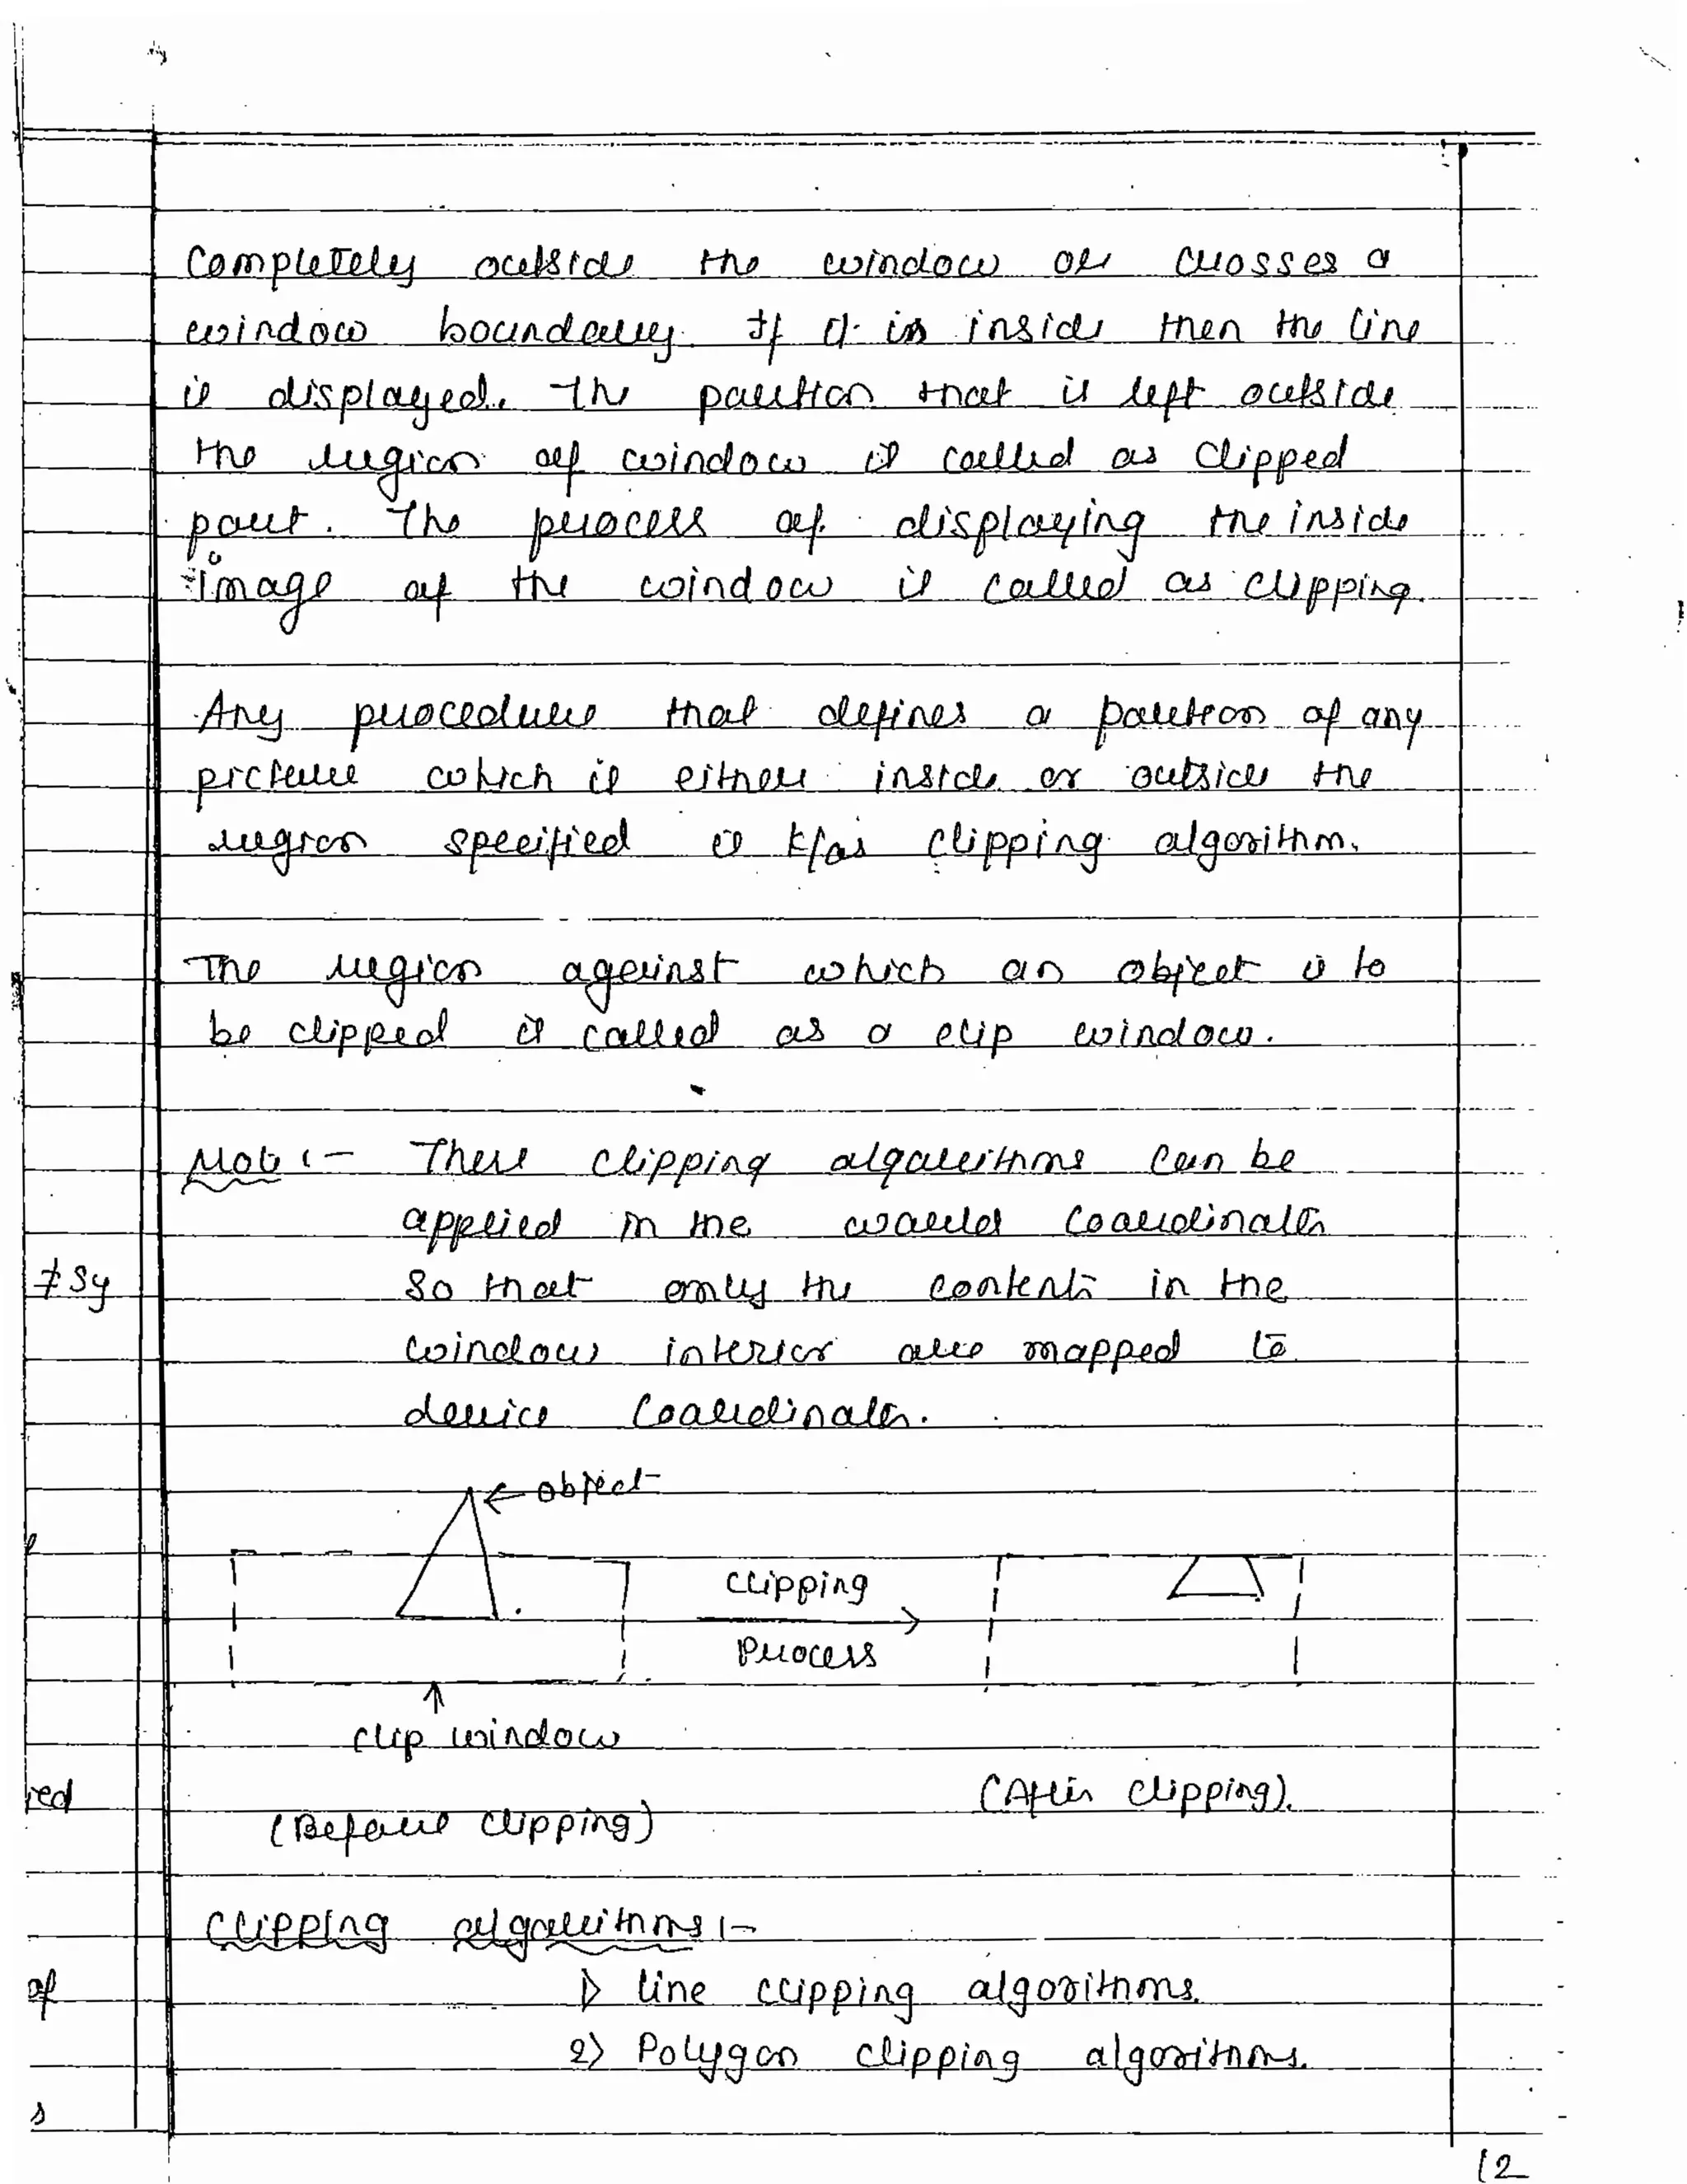 Completely outside the window or crosses a
window boundary. If it is inside then the line
is displayed. The portion that is left outside
the region of window is called as Clipped
part. The process of displaying the inside
image of the window is called as clipping.
Any procedure that defines a portion of any
picture which is either inside or outside the
region specified is k/as clipping algorithm.
The region against which an object is to
be clipped is called as a clip window.
Note :- These clipping algorithms can be
applied in the world coordinates
≠ Sy
So that only the contents in the
window interior are mapped to
device coordinates.
← object
Clipping
Process
clip window
ied
(After clipping).
(Before clipping)
Clipping algorithms :-
of
1) line clipping algorithms.
2) Polygon clipping algorithms.
s
12